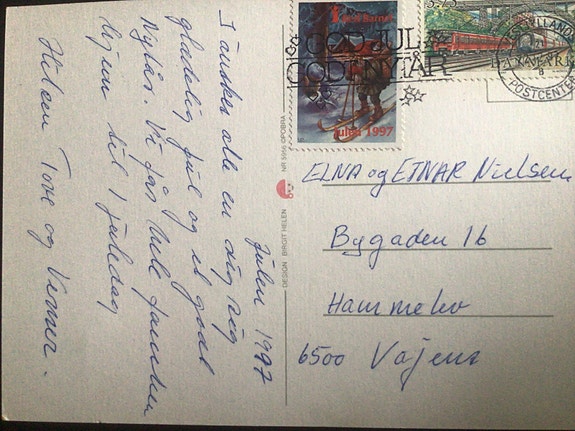 Julen 1997
I ønskes alle en rigtig
glædelig Jul og et godt
Nytår. Vi får hele familien
hjem til 1 juledag
Hilsen Tove og Verner.
DESIGN BIRGIT HELEN
NR 5956 OPOBRA
Børn
Julen 1997
GOD JUL &
GODT NYTÅR
3.75
POSTCENTER
ELNA og EINAR Nielsen
Bygaden 16
Hammelev
6500 Vojens